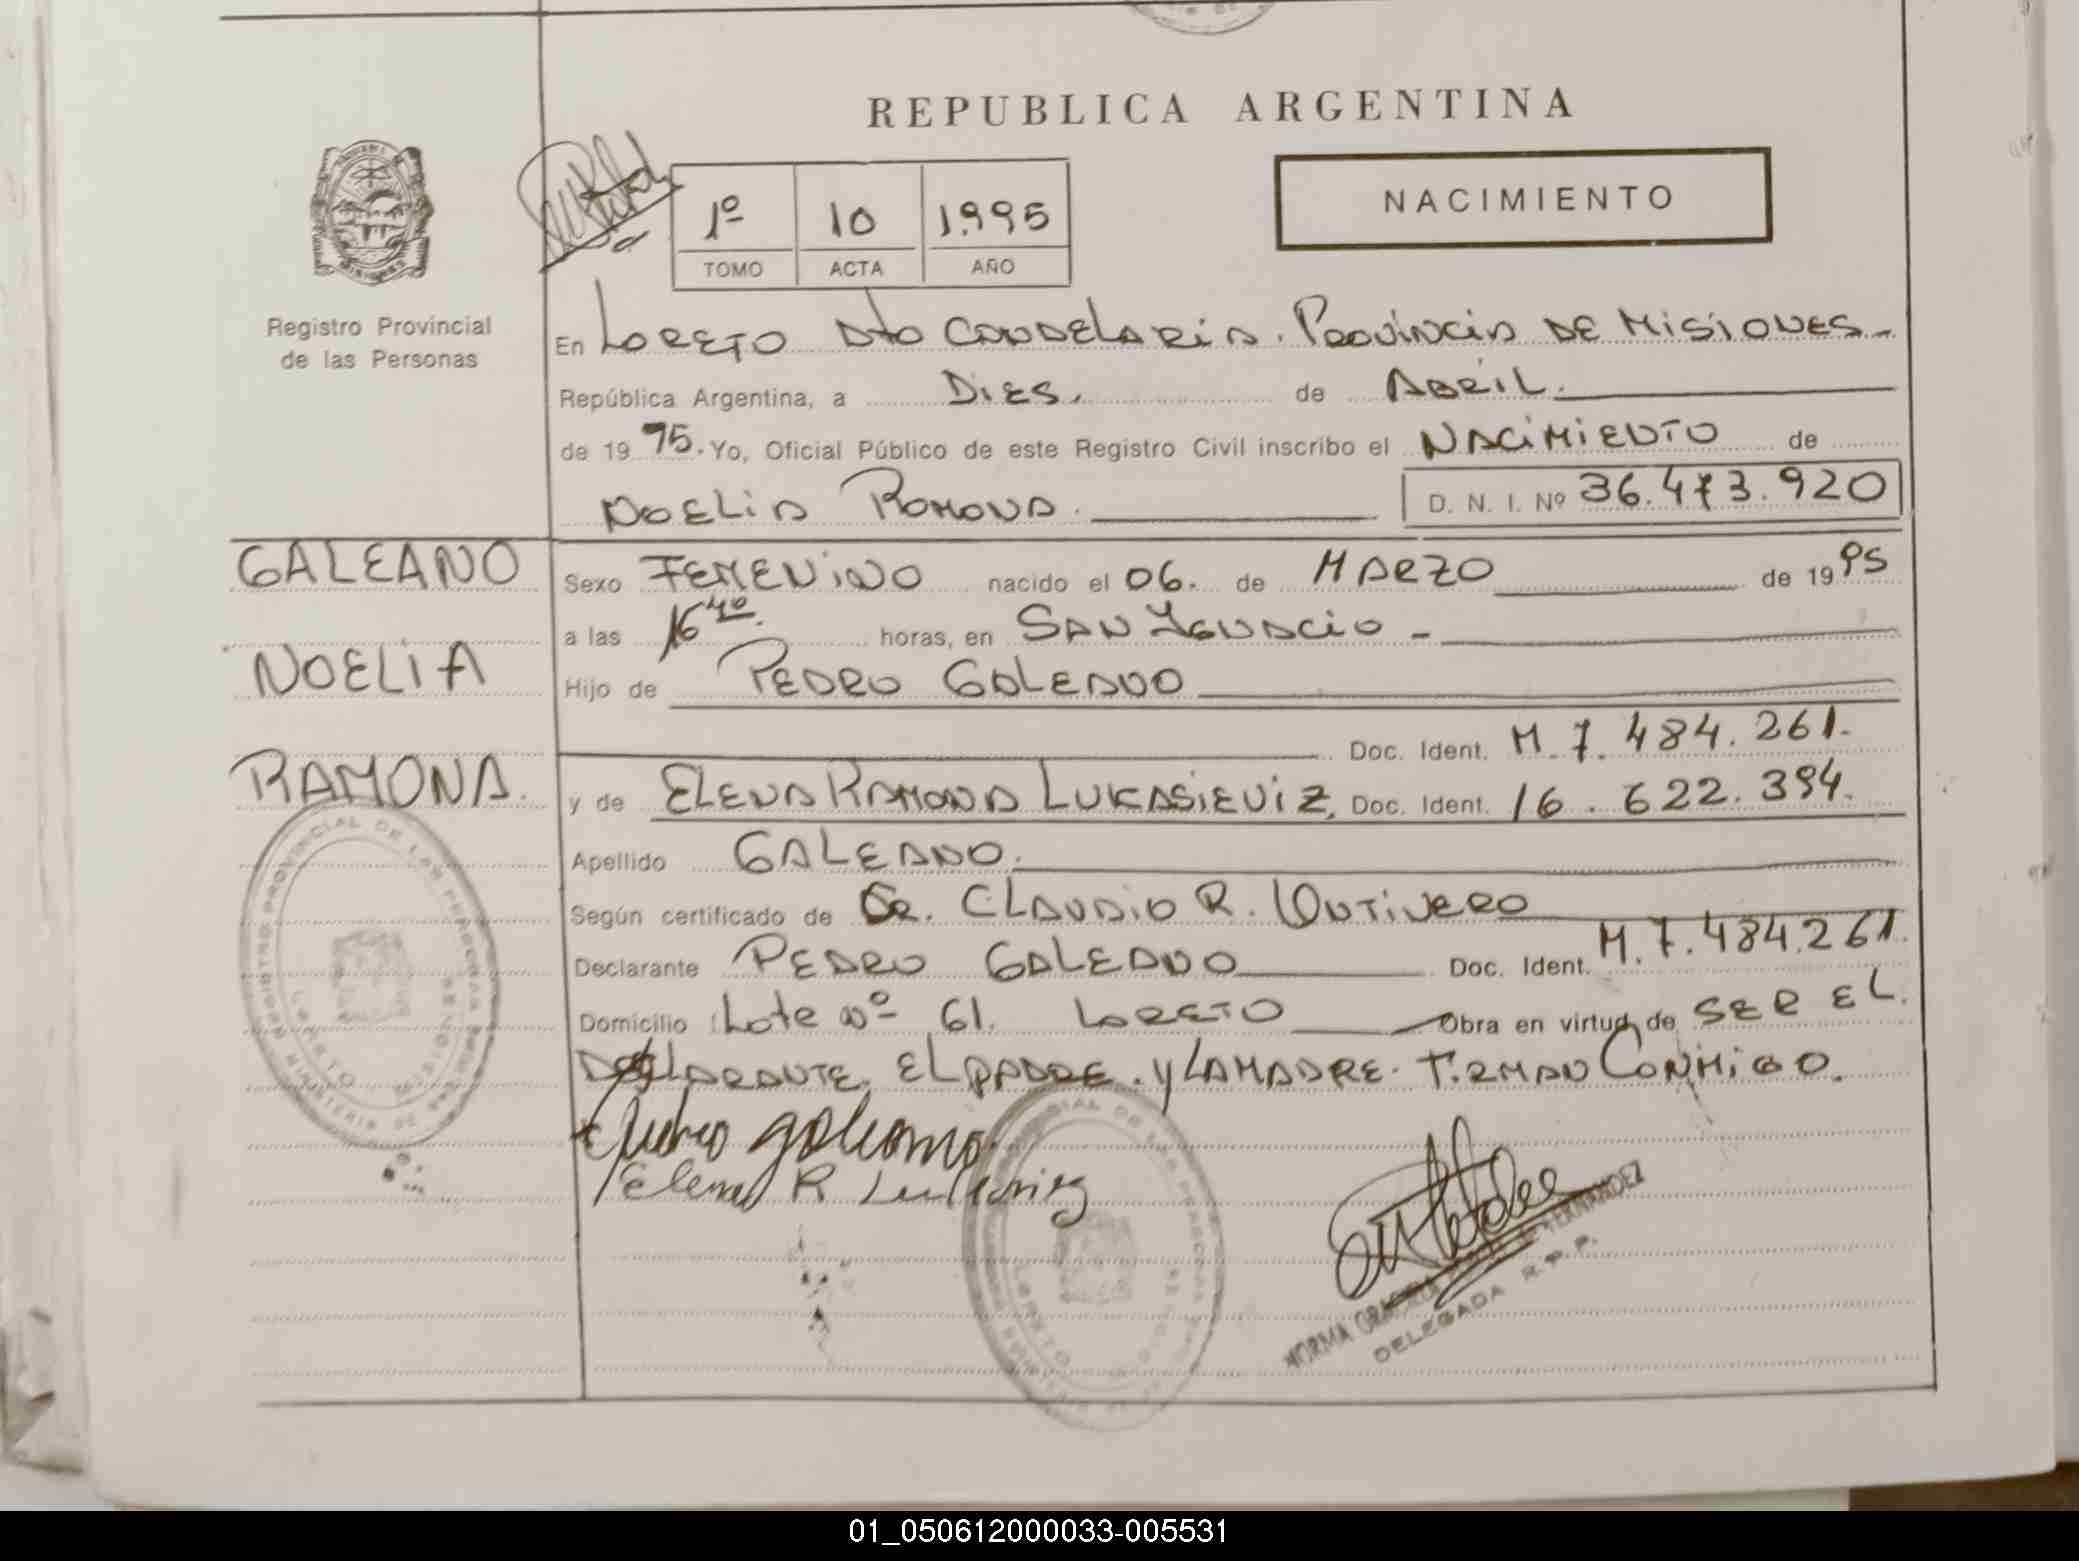 REPUBLICA ARGENTINA
NACIMIENTO
1º 10 1.995
TOMO ACTA AÑO
Registro Provincial
de las Personas
En LORETO Dto CANDELARIA. PROVINCIA DE MISIONES.-
República Argentina, a DIES. de ABRIL.
de 19 95. Yo, Oficial Público de este Registro Civil inscribo el NACIMIENTO de
NOELIA RAMONA. D. N. I. Nº 36.473.920
GALEANO
NOELIA
RAMONA.
Sexo FEMENINO nacido el 06. de MARZO de 19 95
a las 16 40. horas, en SAN IGNACIO -
Hijo de PEDRO GALEANO
Doc. Ident. M. 7. 484. 261.
y de ELENA RAMONA LUKASIEVIZ, Doc. Ident. 16. 622. 394.
Apellido GALEANO.
Según certificado de Dr. CLAUDIO R. ONTIVERO
Declarante PEDRO GALEANO Doc. Ident. M. 7. 484.261.
Domicilio Lote Nº 61. LORETO Obra en virtud de SER EL.
DECLARANTE. EL PADRE. Y LA MADRE. FIRMAN CONMIGO.
Pedro galeano
Elena R
REGISTRO PROVINCIAL DE LAS PERSONAS
LORETO MISIONES
MINISTERIO DE
NORMA GRACIELA FERNANDEZ
DELEGADA R. P. P.
01_050612000033-005531